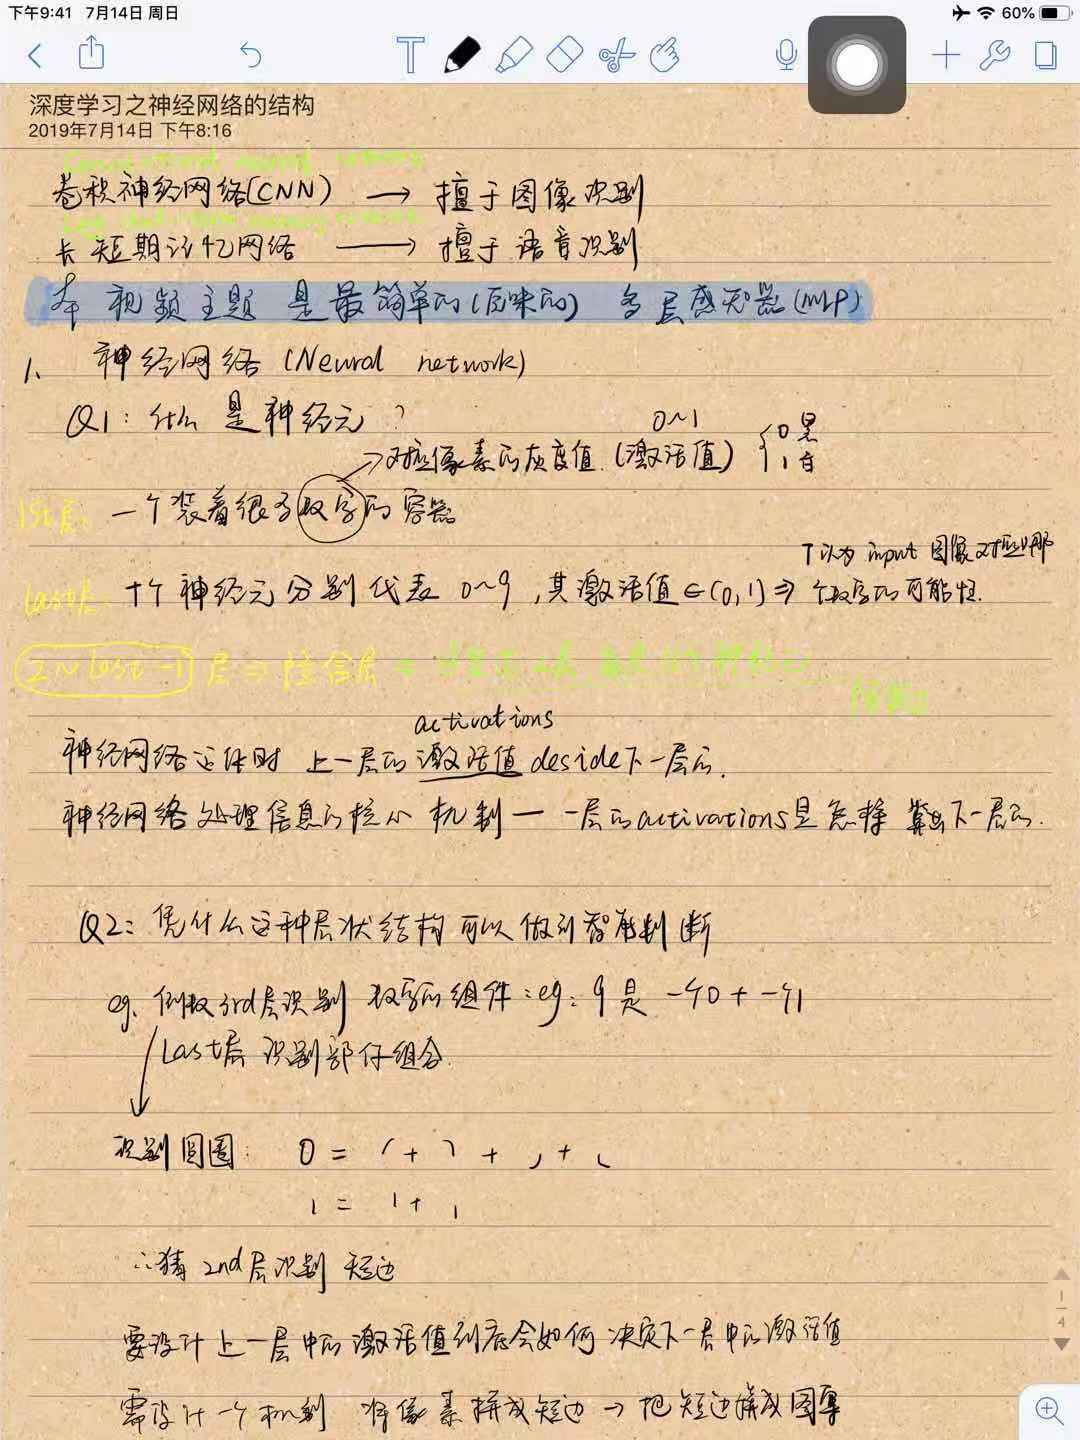 下午9:41 7月14日 周日
60%
深度学习之神经网络的结构
2019年7月14日 下午8:16
Convolutional neural network
卷积神经网络(CNN) → 擅于图像识别
长短期记忆网络 → 擅于语音识别
本视频主题 是最简单的(原味的) 多层感知器(MLP)
1、 神经网络 (Neural network)
Q1: 什么是神经元?
0~1
→对应像素的灰度值(激活值) {0黑
1白
1st层: 一个装着很多数字的容器
下认为 input 图像对应哪
Last层: 十个神经元分别代表 0~9, 其激活值∈(0,1)⇒ 个数字的可能性.
2~last-1层⇒隐含层=
activations
神经网络运作时 上一层的激活值 deside下一层的.
神经网络处理信息的核心机制— 一层的activations是怎样算出下一层的.
Q2: 凭什么这种层状结构可以做到智能判断
eg. 倒数3rd层识别 数字的组件: eg: 9是
Last层 识别部件组合.
识别圆圈:
∴猜 2nd层识别 短边
要设计上一层中的激活值到底会如何决定下一层中的激活值
需设计一个机制 将像素拼成短边→把短边拼成图案
1
4